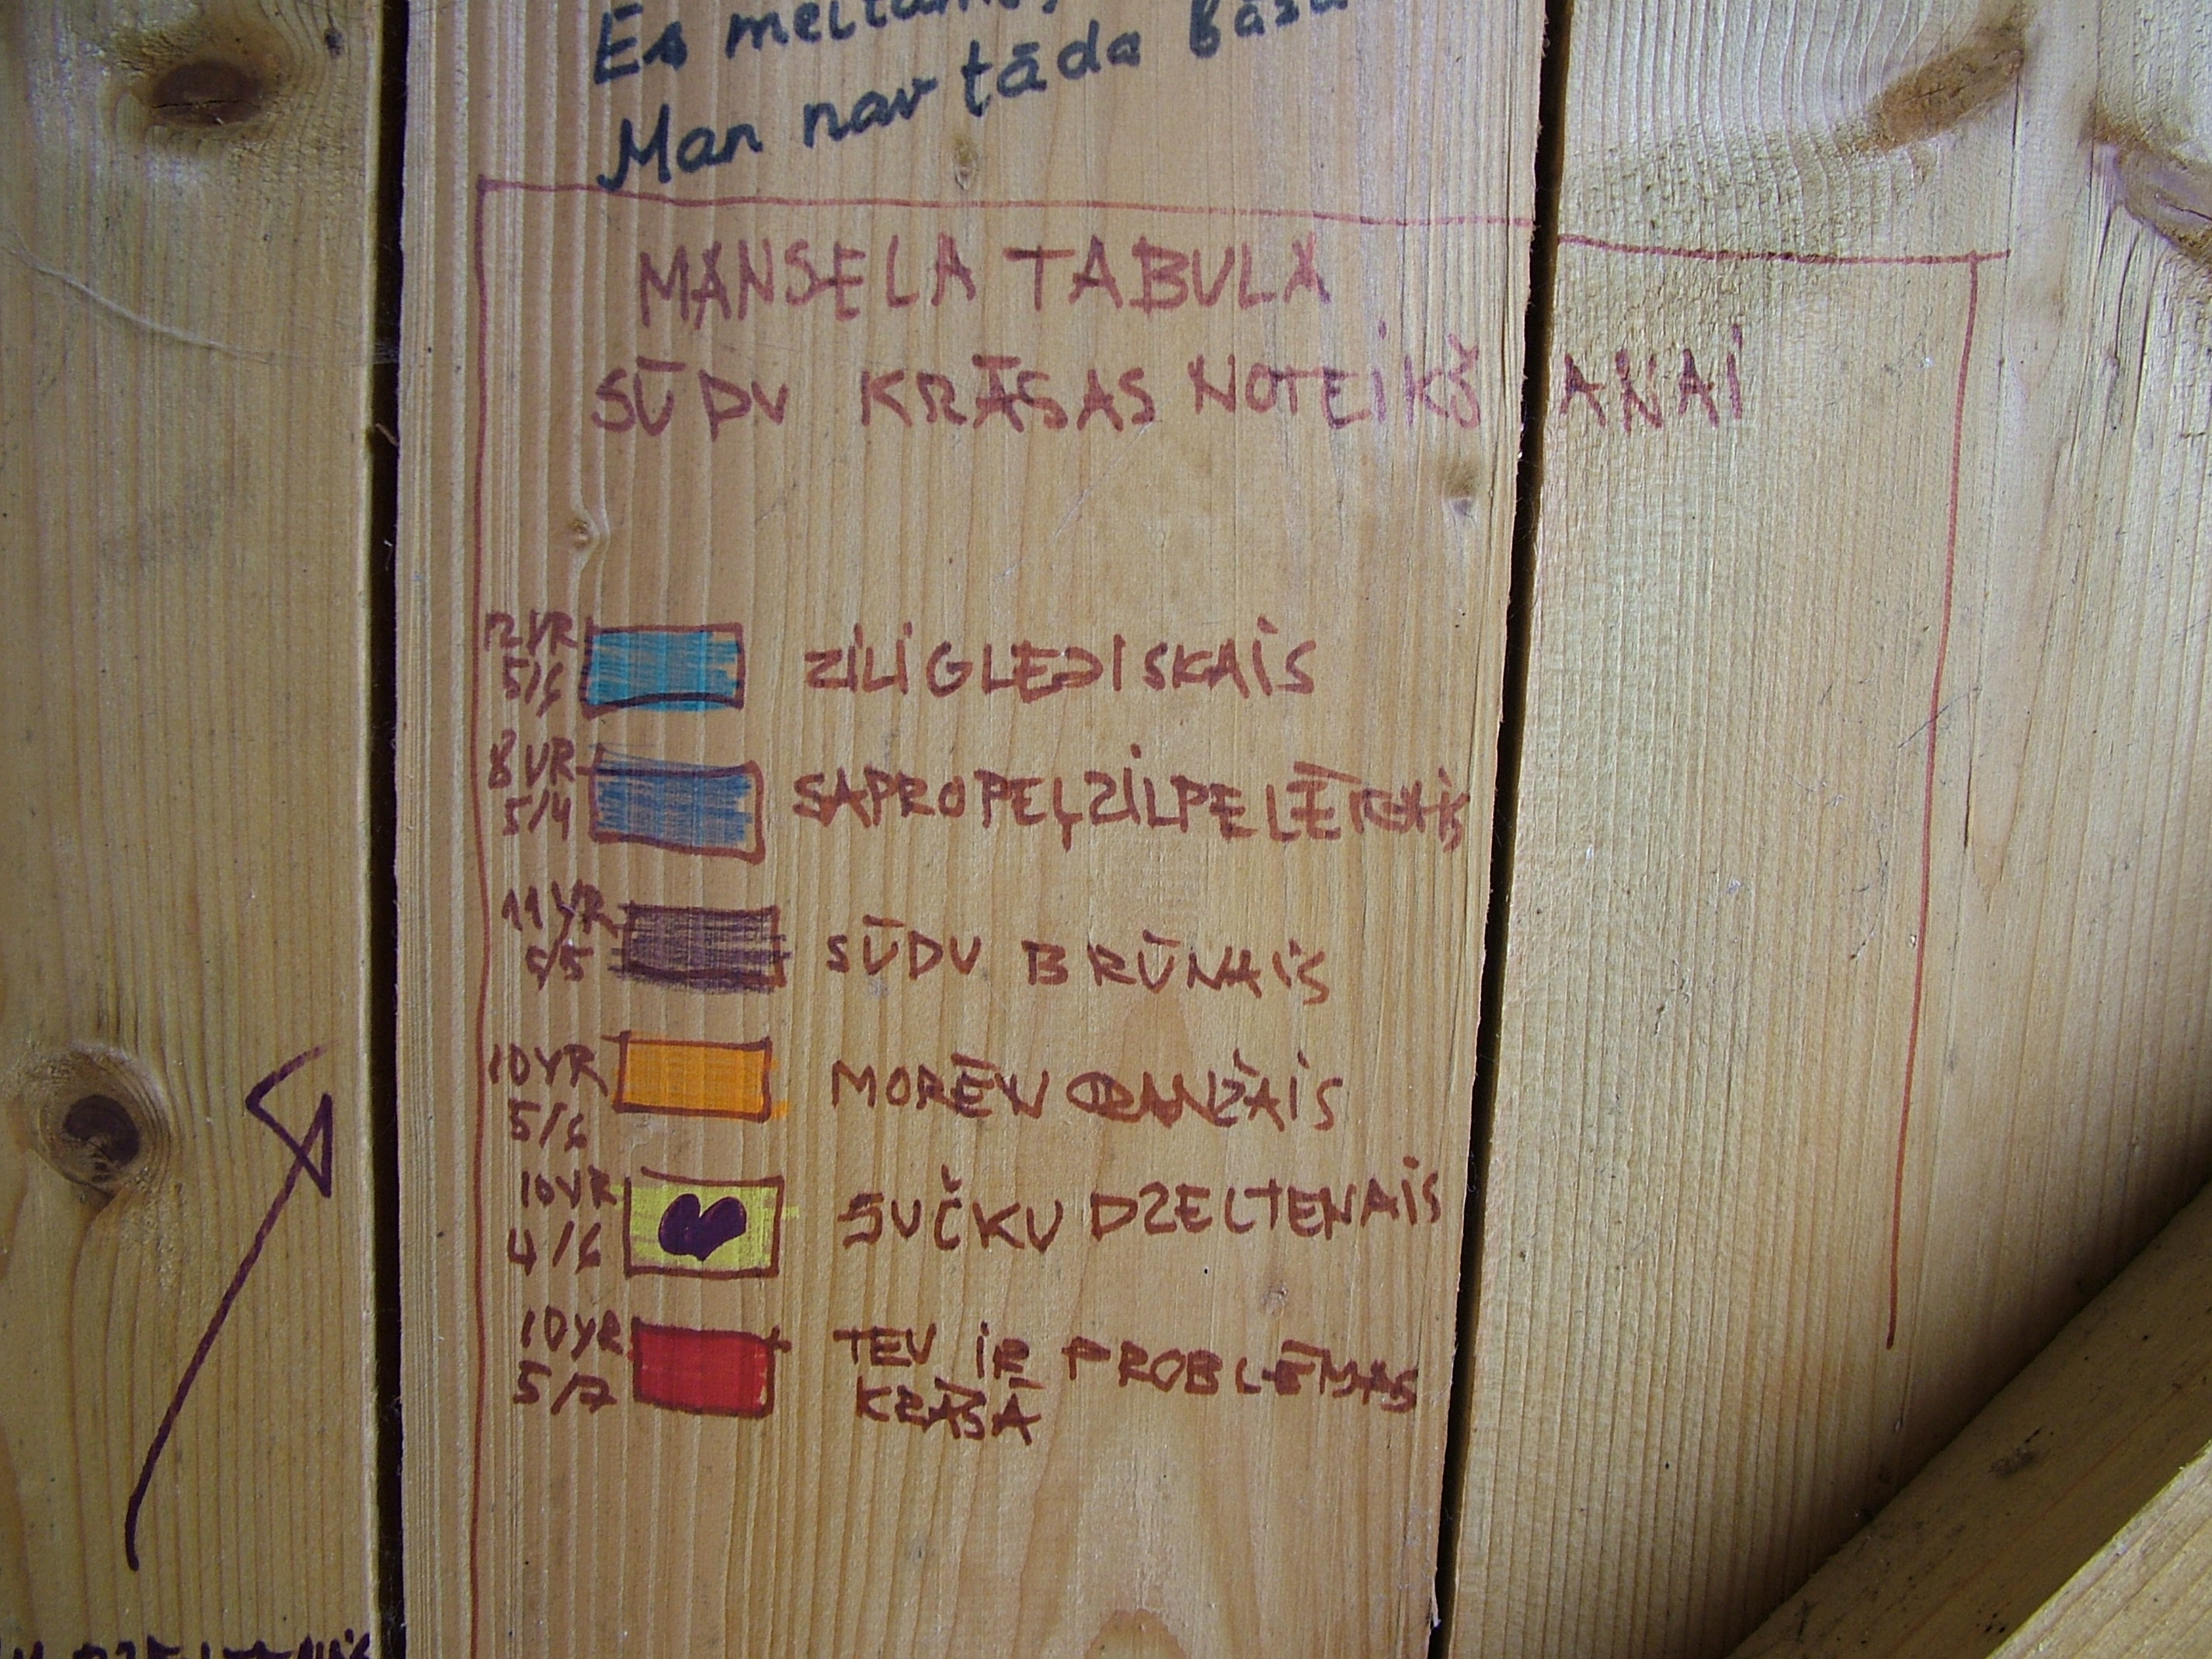 Es
Man nav tāda
MANSELA TABULA
SŪDU KRĀSAS NOTEIKŠANAI
12YR
5/6
ZILIGLEDISKAIS
8YR
5/4
SAPROPEĻZILPELĒKAIS
11YR
5/5
SŪDU BRŪNAIS
10YR
5/6
MORĒN ORANŽAIS
10YR
4/6
SUČKU DZELTENAIS
10YR
5/7
TEV IR PROBLĒMAS
KRĀSĀ